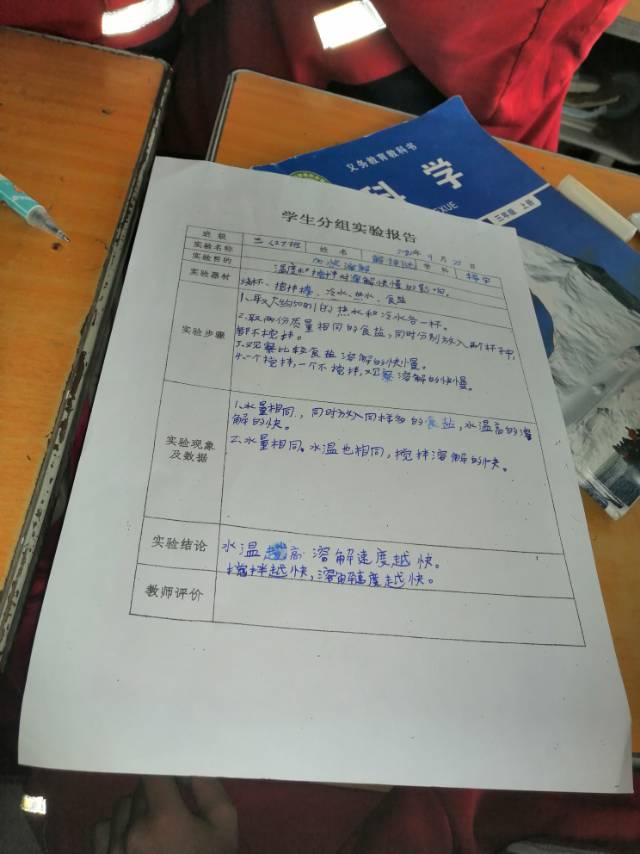 义务教育教科书
科学
XUE
三年级 上册
学生分组实验报告
班级
姓名
9月
学科
实验名称
实验目的
温度和搅拌对溶解快慢的影响。
实验器材
烧杯、搅拌棒、冷水、热水、食盐
实验步骤
1.取大约50ml的热水和冷水各一杯。
2.取两份质量相同的食盐,同时分别放入两杯中,
都不搅拌。
3.观察比较食盐溶解的快慢。
4.一个搅拌,一个不搅拌,观察溶解的快慢。
实验现象
及数据
1.水量相同,同时放入同样多的食盐,水温高的溶
解的快。
2.水量相同。水温也相同,搅拌溶解的快。
实验结论
水温越高溶解速度越快。
搅拌越快,溶解速度越快。
教师评价